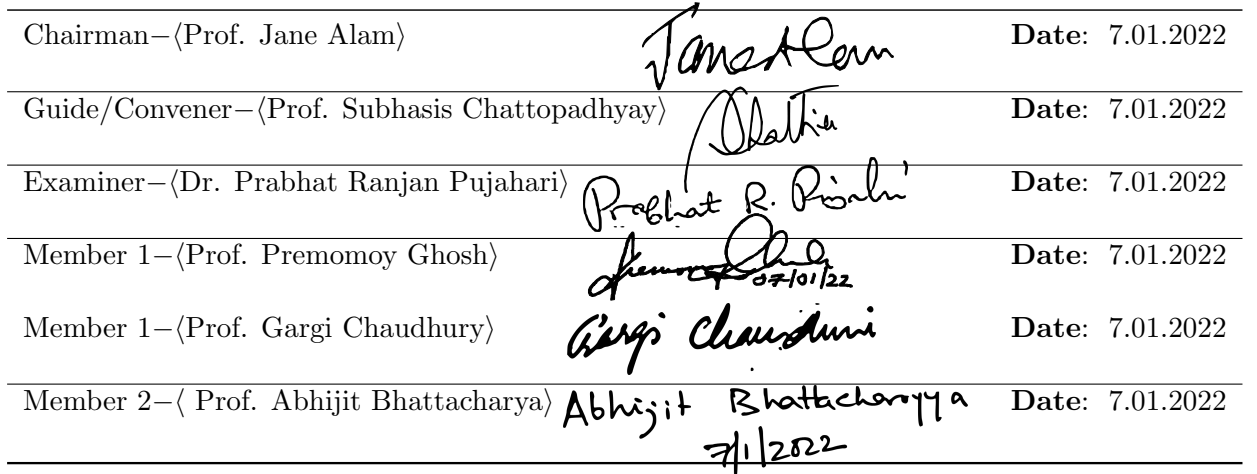 Chairman−⟨Prof. Jane Alam⟩ Jane Alam Date: 7.01.2022
Guide/Convener−⟨Prof. Subhasis Chattopadhyay⟩ Date: 7.01.2022
Examiner−⟨Dr. Prabhat Ranjan Pujahari⟩ Prabhat R. Date: 7.01.2022
Member 1−⟨Prof. Premomoy Ghosh⟩ Date: 7.01.2022
07/01/22
Member 1−⟨Prof. Gargi Chaudhury⟩ Gargi Chaudhuri Date: 7.01.2022
Member 2−⟨ Prof. Abhijit Bhattacharya⟩ Abhijit Bhattacharyya Date: 7.01.2022
7/1/2022